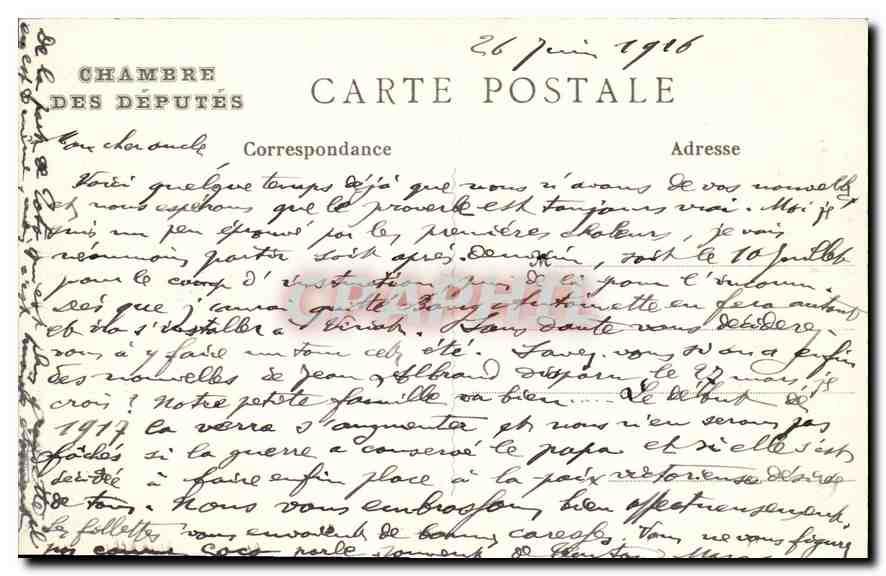 26 Juin 1916
CHAMBRE
DES DÉPUTÉS
CARTE POSTALE
Correspondance
Adresse
Mon cher oncle
Voici quelque temps déjà que nous n'avons de vos nouvelles
et nous espérons que le proverbe est toujours vrai. Moi je
suis un peu éprouvé par les premières chaleurs, je vais
néanmoins partir soit après-demain, soit le 10 Juillet
pour le camp d'instruction puis de là pour l'inconnu.
Dès que j'aurai quitté Antoinette en fera autant
et ira s'installer à. Sans doute vous déciderez
vous à y faire un tour cet été. Savez-vous si on a enfin
des nouvelles de Jean disparu le 27 mars, je
crois? Notre petite famille va bien.... Le début de
1917 la verra s'augmenter et nous n'en serons pas
fâchés si la guerre a conservé le papa et si elle s'est
décidée à faire enfin place à la paix victorieuse désirée
de tous. Nous vous embrassons bien affectueusement.
Les fillettes vous envoient de bonnes caresses. Vous ne vous figurez
pas comme parle souvent de
de la part de
CPAPHIL